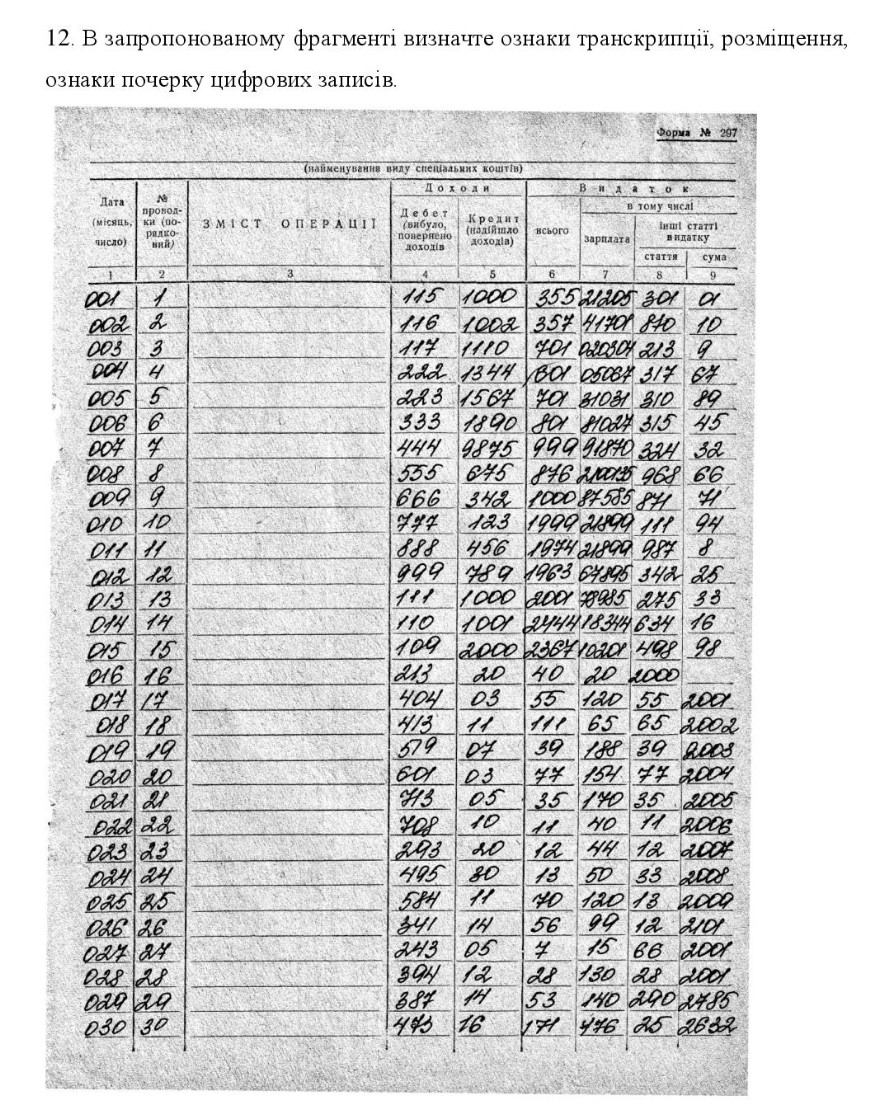 12. В запропонованому фрагменті визначте ознаки транскрипції, розміщення,
ознаки почерку цифрових записів.
Форма № 297
(найменування виду спеціальних коштів)
Дата (місяць, число) № проводки (порядковий) ЗМІСТ ОПЕРАЦІЇ Доходи Видаток
Дебет (вибуло, повернено доходів) Кредит (надійшло доходів) всього в тому числі
зарплата інші статті видатку
стаття сума
1 2 3 4 5 6 7 8 9
001 1 115 1000 355 21205 301 01
002 2 116 1002 357 41701 870 10
003 3 117 1110 701 020304 213 9
004 4 222 1344 601 05067 317 67
005 5 223 1567 701 31031 310 89
006 6 333 1890 801 81027 315 45
007 7 444 9875 999 91870 324 32
008 8 555 675 876 968 66
009 9 666 342 1000 87585 871 71
010 10 777 123 1999 21899 118 94
011 11 888 456 1974 21899 987 8
012 12 999 789 1963 67895 342 25
013 13 111 1000 2001 78985 275 33
014 14 110 1001 2444 18344 634 16
015 15 109 2000 2367 10201 498 98
016 16 213 20 40 20 2000
017 17 404 03 55 120 55 2001
018 18 413 11 111 65 65 2002
019 19 579 07 39 188 39 2003
020 20 601 03 77 154 77 2004
021 21 713 05 35 170 35 2005
022 22 708 10 11 40 11 2006
023 23 293 20 12 44 12 2007
024 24 495 30 13 50 33 2008
025 25 584 11 70 120 13 2009
026 26 341 14 56 99 12 2101
027 27 243 05 7 15 66 2001
028 28 394 12 28 130 28 2001
029 29 387 14 53 140 290 2785
030 30 473 16 171 476 25 2632